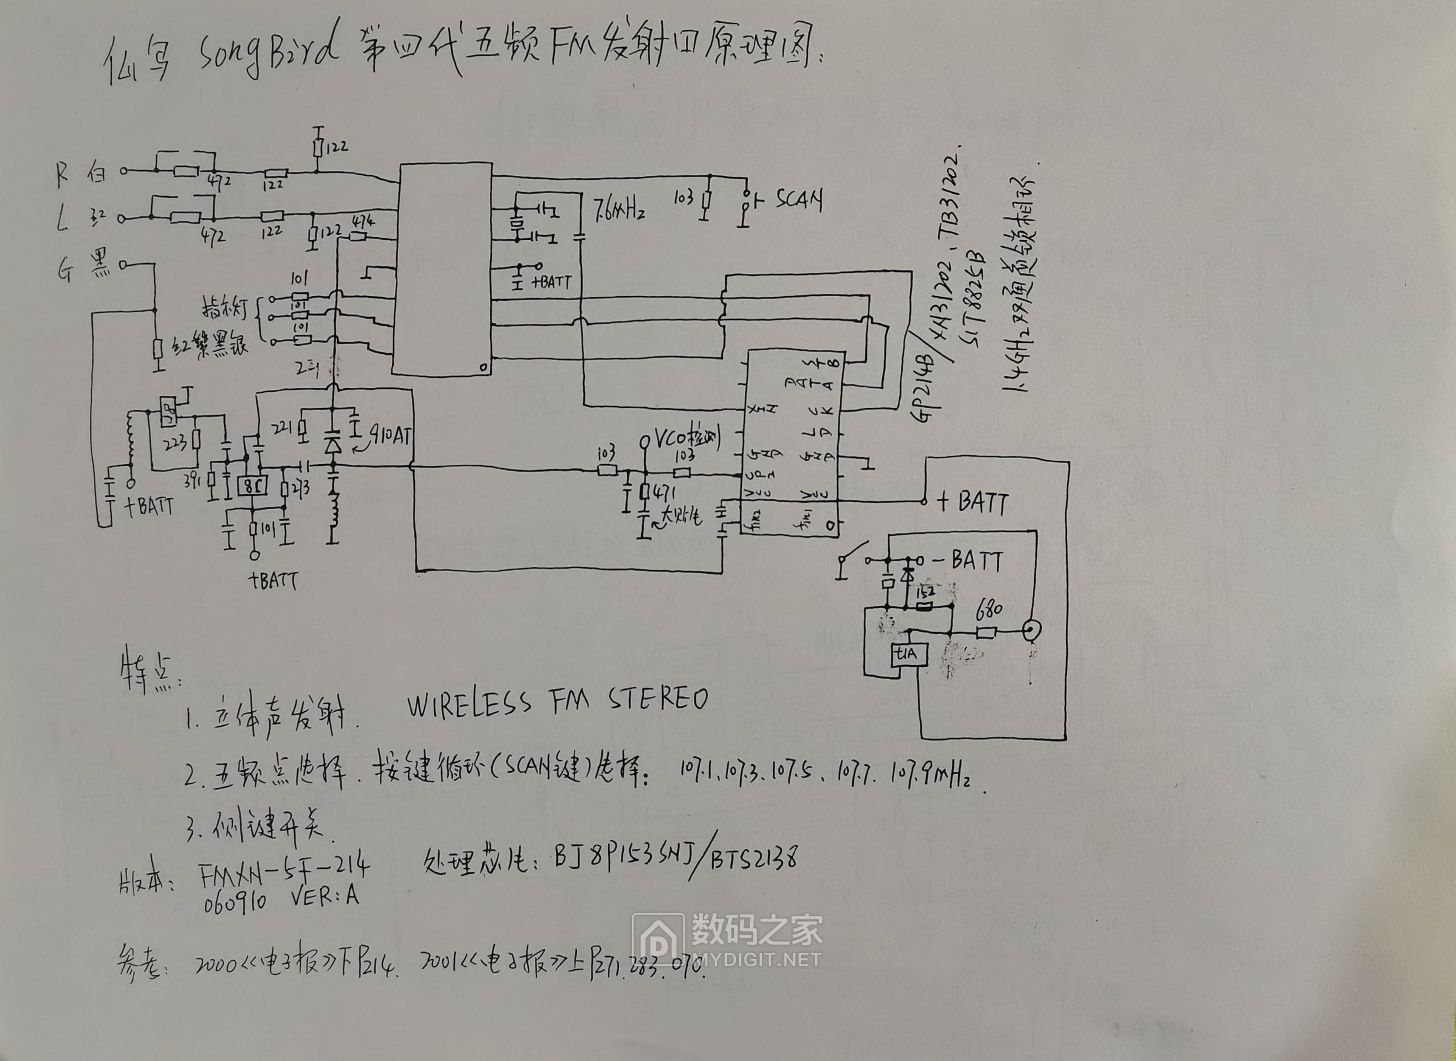 仙鸟 SongBird 第四代五频FM发射田原理图:
R 白
472
122
122
L 红
472
122
122
474
G 黑
指示灯
101
101
101
红 黑银
7.6mHz
+BATT
103
SCAN
GP214B/XA31202、TB31202、
SIT8825B
1.4GHz双通道锁相环
STB
DATA
XIN
CK
LD
GND
GND
CP2
VCC
VCC
fin2
fin1
223
391
+BATT
221
910AT
273
101
+BATT
103
VCO检测
103
471
+BATT
-BATT
152
680
t1A
特点:
1. 立体声发射. WIRELESS FM STEREO
2. 五频点选择. 按键循环(SCAN键)选择: 107.1、107.3、107.5、107.7、107.9mHz.
3. 侧键开关.
版本: FMXN-5F-214 处理芯片: BJ8P153SNJ/BTS2138
060910 VER:A
参考: 2000《电子报》下P214. 2001《电子报》上P271.283.070.
数码之家
MYDIGIT.NET